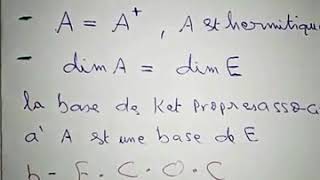 - A = A⁺, A st hermitique
- dim A = dim E
la base de Ket propres asso
à A est une base de E
b - E.C.O.C